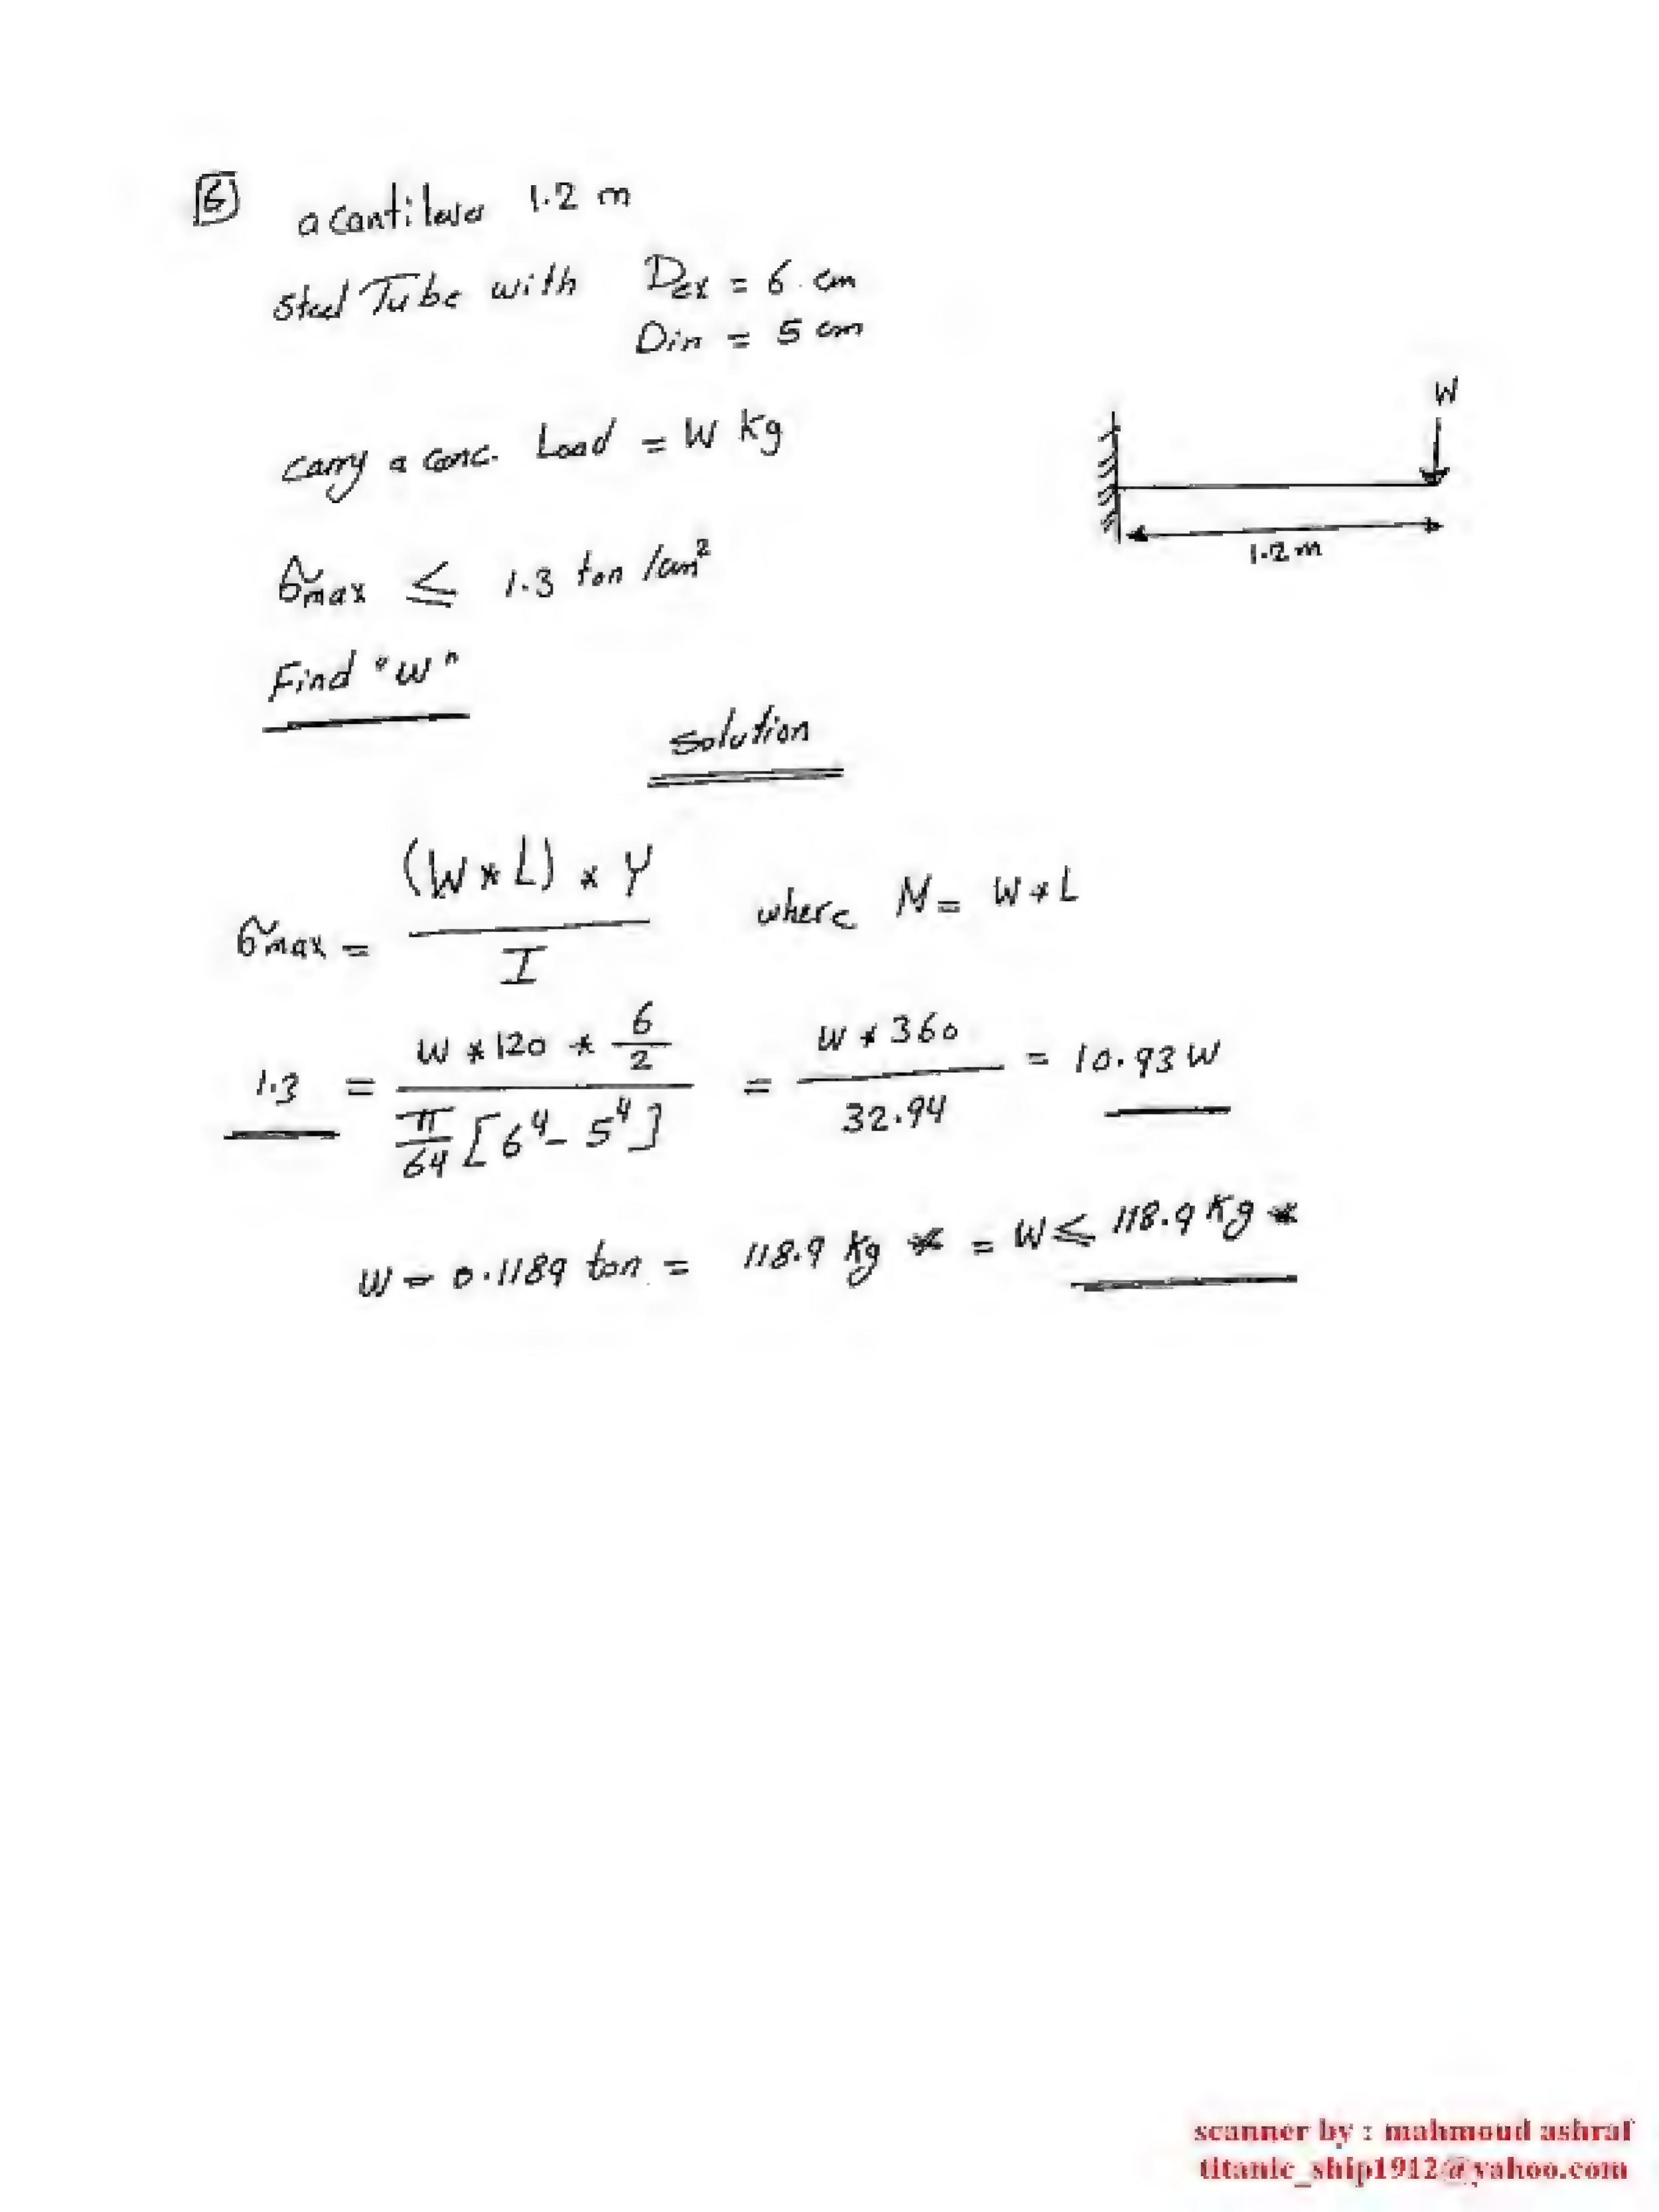 6 a cantilever 1.2 m
Steel Tube with Dex = 6 cm
Din = 5 cm
carry a conc. Load = W Kg
W
1.2 m
σmax ≤ 1.3 ton /cm²
Find "W"
Solution
σmax = (W * L) * Y / I where M = W * L
1.3 = W * 120 * 6/2 / π/64 [6⁴ - 5⁴] = W * 360 / 32.94 = 10.93 W
W = 0.1189 ton = 118.9 Kg * = W ≤ 118.9 Kg *
scanner by : mahmoud ashraf
titanic_ship1912@yahoo.com